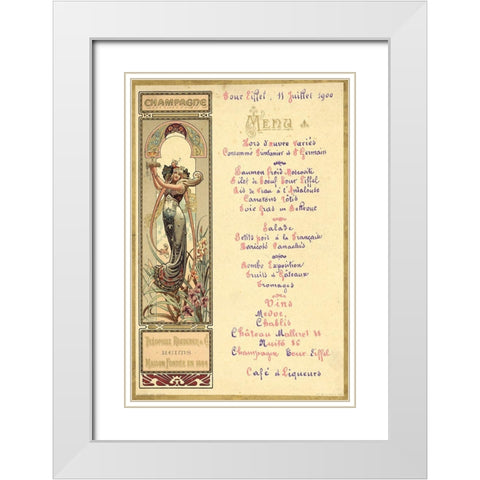 CHAMPAGNE
Théophile Roederer & Co
REIMS
Maison Fondée en 1864
Tour Eiffel, 11 Juillet 1900
Menu
Hors d'œuvre Variés
Consommé Printanier & St Germain
Saumon froid Moscovite
Filet de Bœuf Tour Eiffel
Ris de Veau à l'Andalouse
Canetons Rôtis
Foie Gras en Bellevue
Salade
Petits pois à la Française
Haricots Panachés
Bombe Exposition
Fruits & Gâteaux
Fromages
Vins
Medoc,
Chablis
Château Malleret
Nuits
Champagne Tour Eiffel
Café & Liqueurs